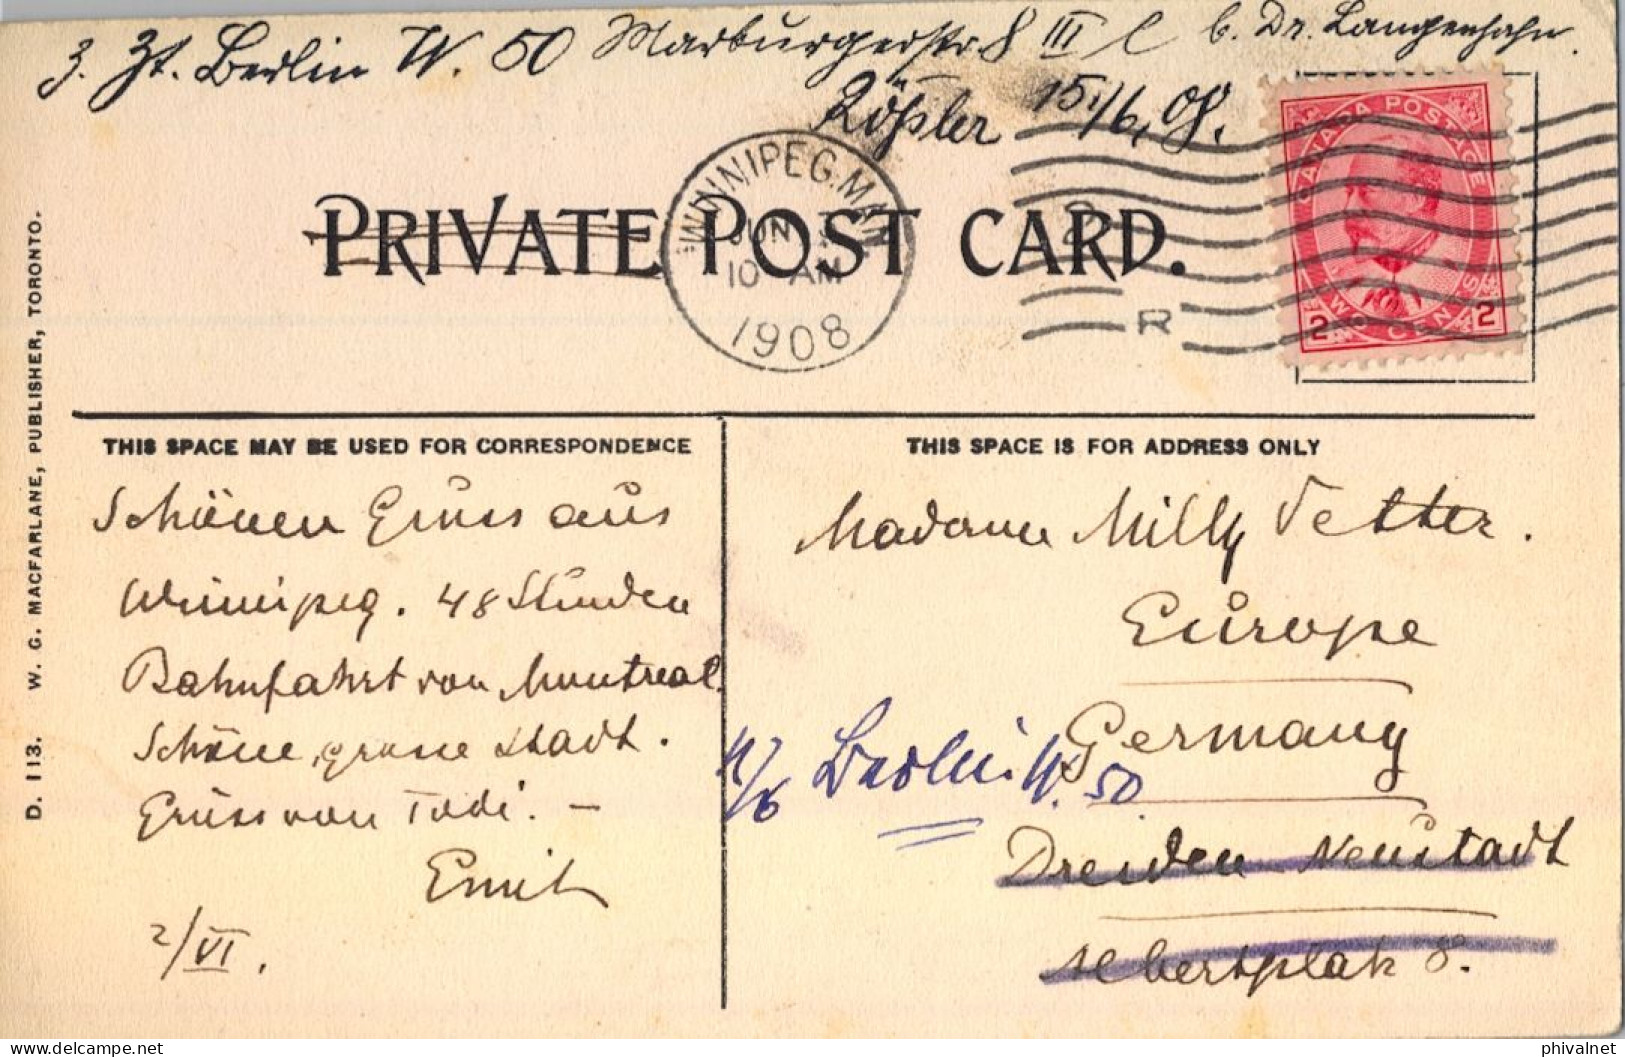 z. Zt. Berlin W. 50 Marburgerstr. 8 III l b. Dr. Langenhahn.
Rößler 15./6. 08.
WINNIPEG. MAN
JUN
10 AM
1908
R
CANADA POSTAGE
TWO CENTS
2 2
PRIVATE POST CARD.
THIS SPACE MAY BE USED FOR CORRESPONDENCE
Schönen Gruss aus
Winnipeg. 48 Stunden
Bahnfahrt von Montreal.
Schöne, grosse Stadt.
Grüss von Todi. —
Emil
2/VI.
THIS SPACE IS FOR ADDRESS ONLY
Madame Milly Vetter.
Europe
Germany
Berlin W. 50
Dresden Neustadt
Albertplatz 8.
D. 113. W. G. MACFARLANE, PUBLISHER, TORONTO.
delcampe.net
phivalnet